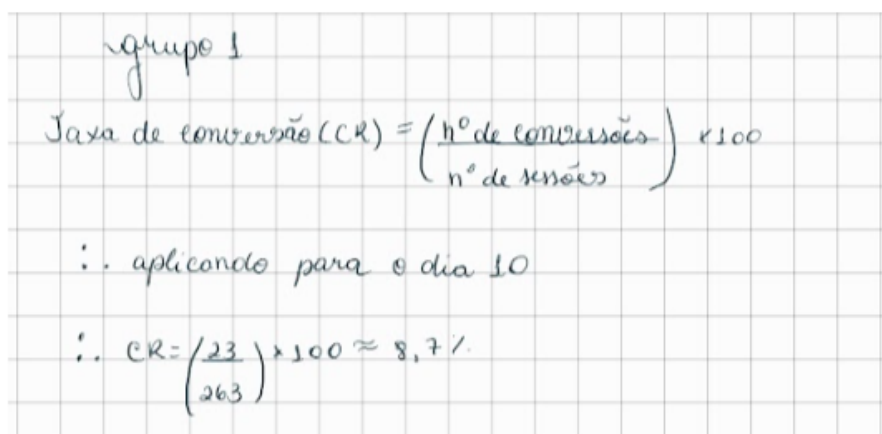 grupo 1
Taxa de conversão (CR) = (nº de conversões / nº de sessões) × 100
∴ aplicando para o dia 10
∴ CR = (23 / 263) × 100 ≈ 8,7 %